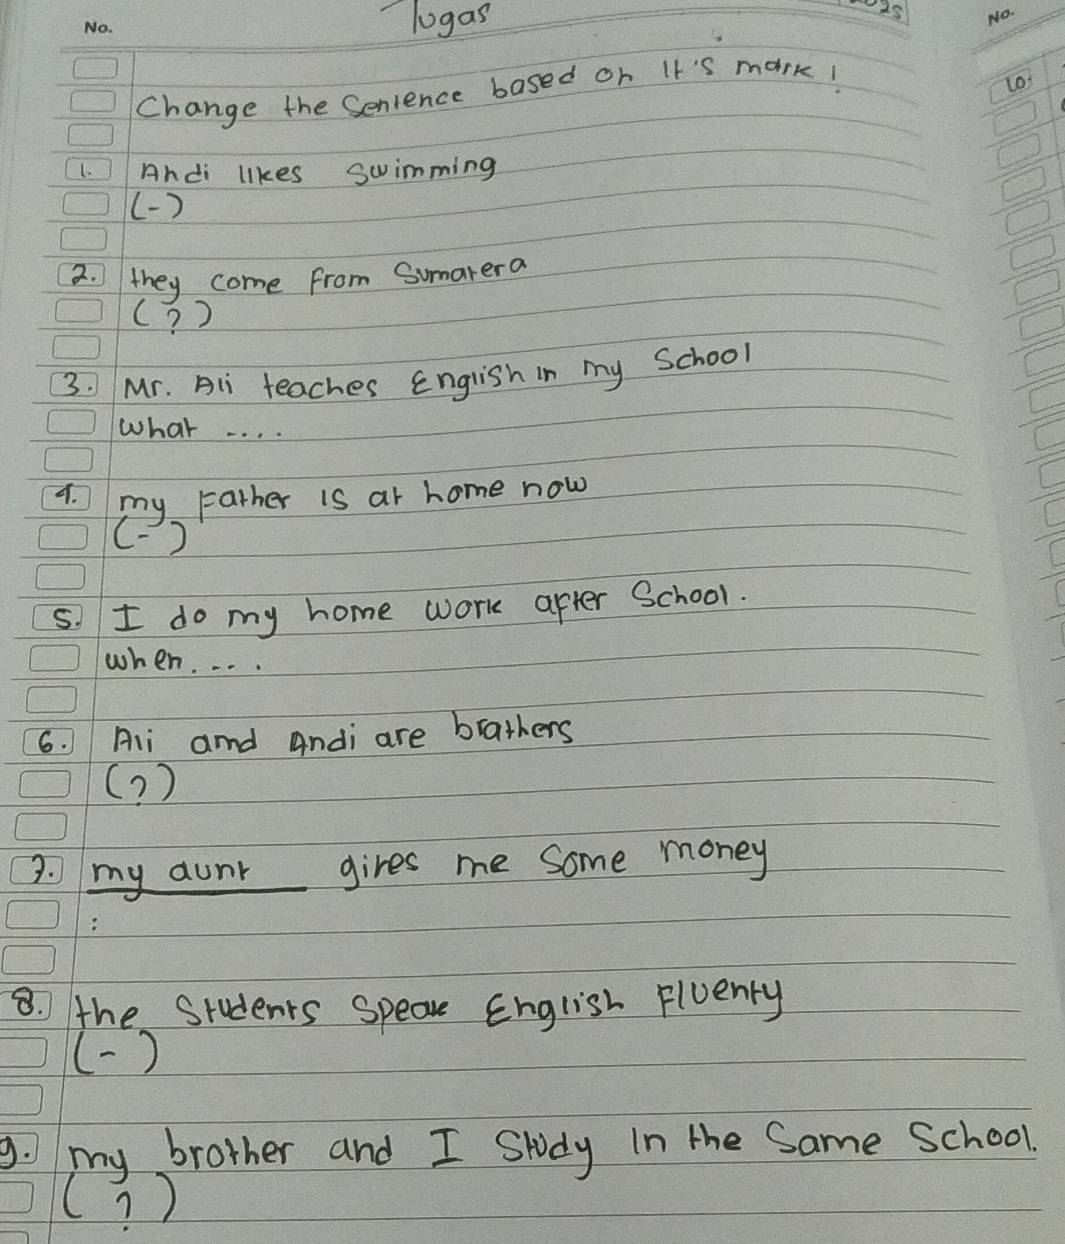 No.
Tugas
No.
Change the Sentence based on It's mark!
10.
1. Andi likes swimming
(-)
2. they come from Sumatera
(?)
3. Mr. Ali teaches English in my School
what ....
4. my Father is at home now
(-)
5. I do my home work after School.
when....
6. Ali amd Andi are brathers
(?)
7. my aunt gives me Some money
:
8. the Students Speak English Fluenty
(-)
9. my brother and I Study in the Same School.
(?)